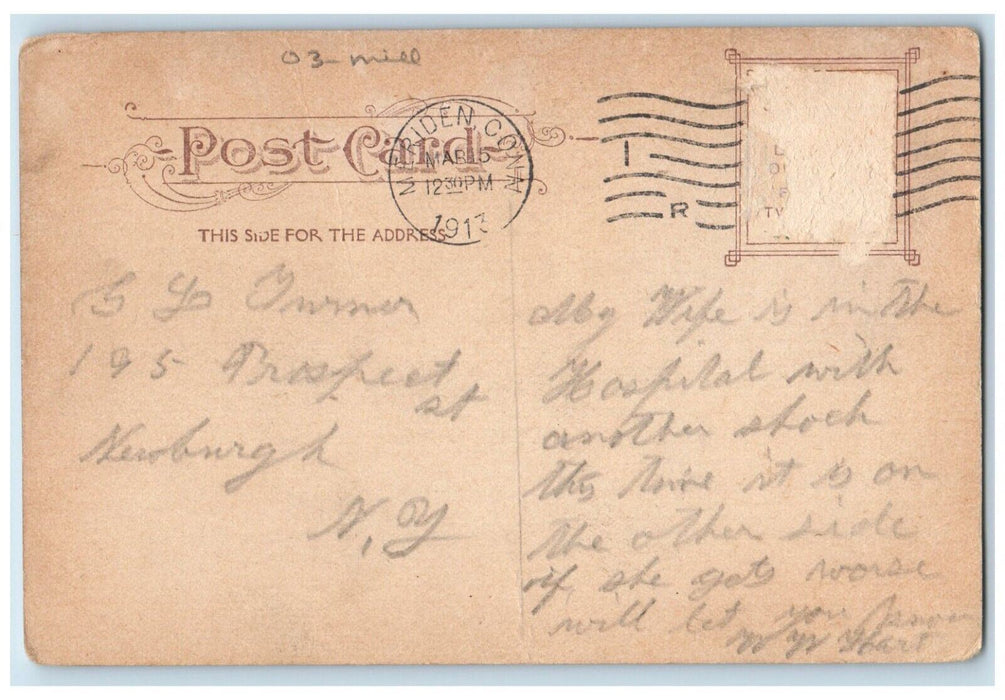 03 mill
Post Card
MERIDEN, CONN
MAR 15
12 30 PM
1913
I
R
THIS SIDE FOR THE ADDRESS
Turner
195 Prospect
st
Newburgh
N, Y
My Wife is in the
Hospital with
another shock
this time it is on
the other side
if she gets worse
will let you know
W W Hart